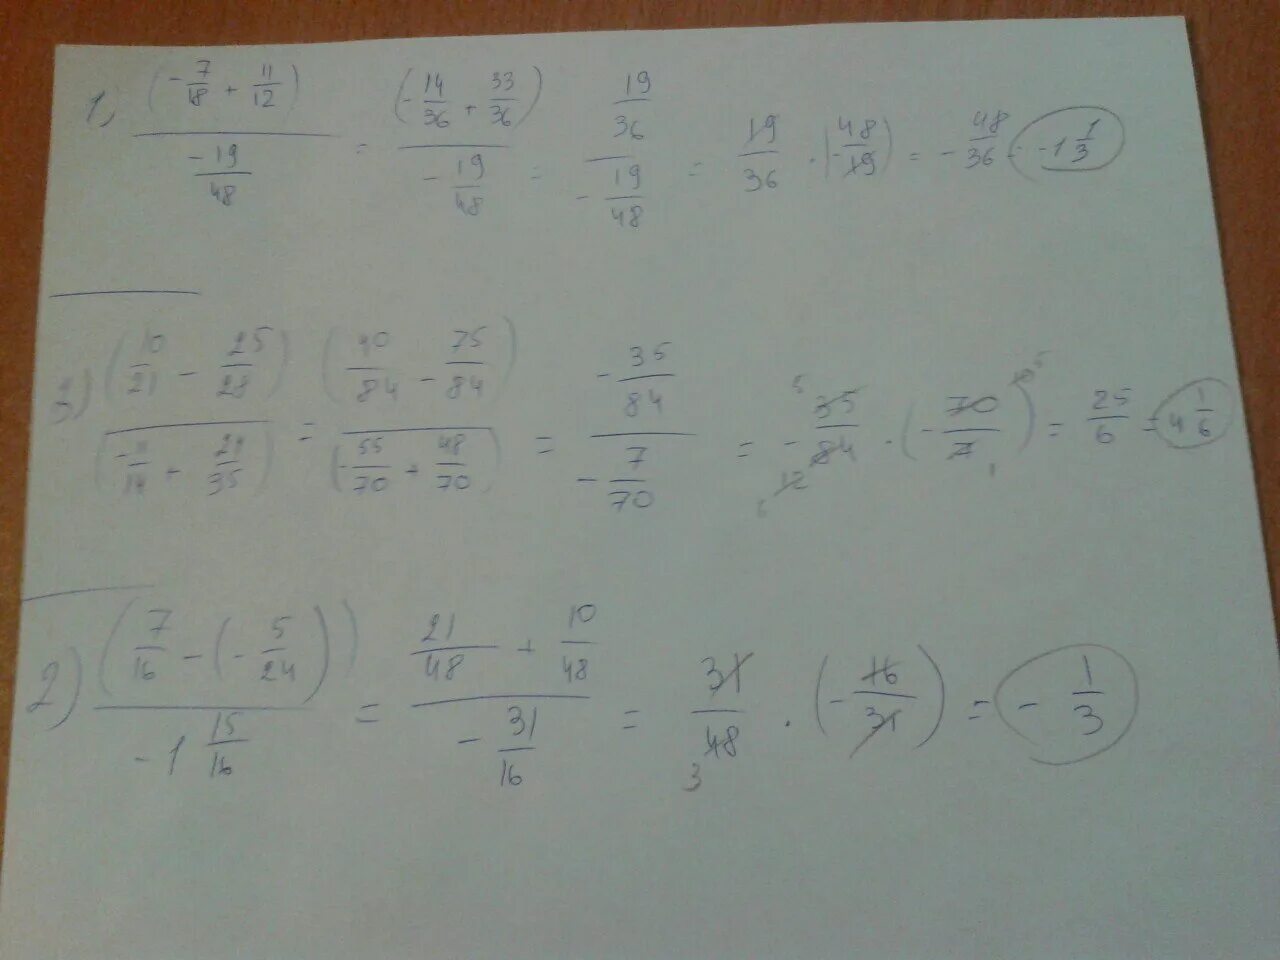 1) (-7/18 + 11/12) / (-19/48) = (-14/36 + 33/36) / (-19/48) = (19/36) / (-19/48) = 19/36 · (-48/19) = -48/36 = -1 1/3
3) (10/21 - 25/28) / (-11/14 + 24/35) = (40/84 - 75/84) / (-55/70 + 48/70) = (-35/84) / (-7/70) = -35/84 · (-70/7) = 25/6 = 4 1/6
2) (7/16 - (-5/24)) / (-1 15/16) = (21/48 + 10/48) / (-31/16) = 31/48 · (-16/31) = -1/3